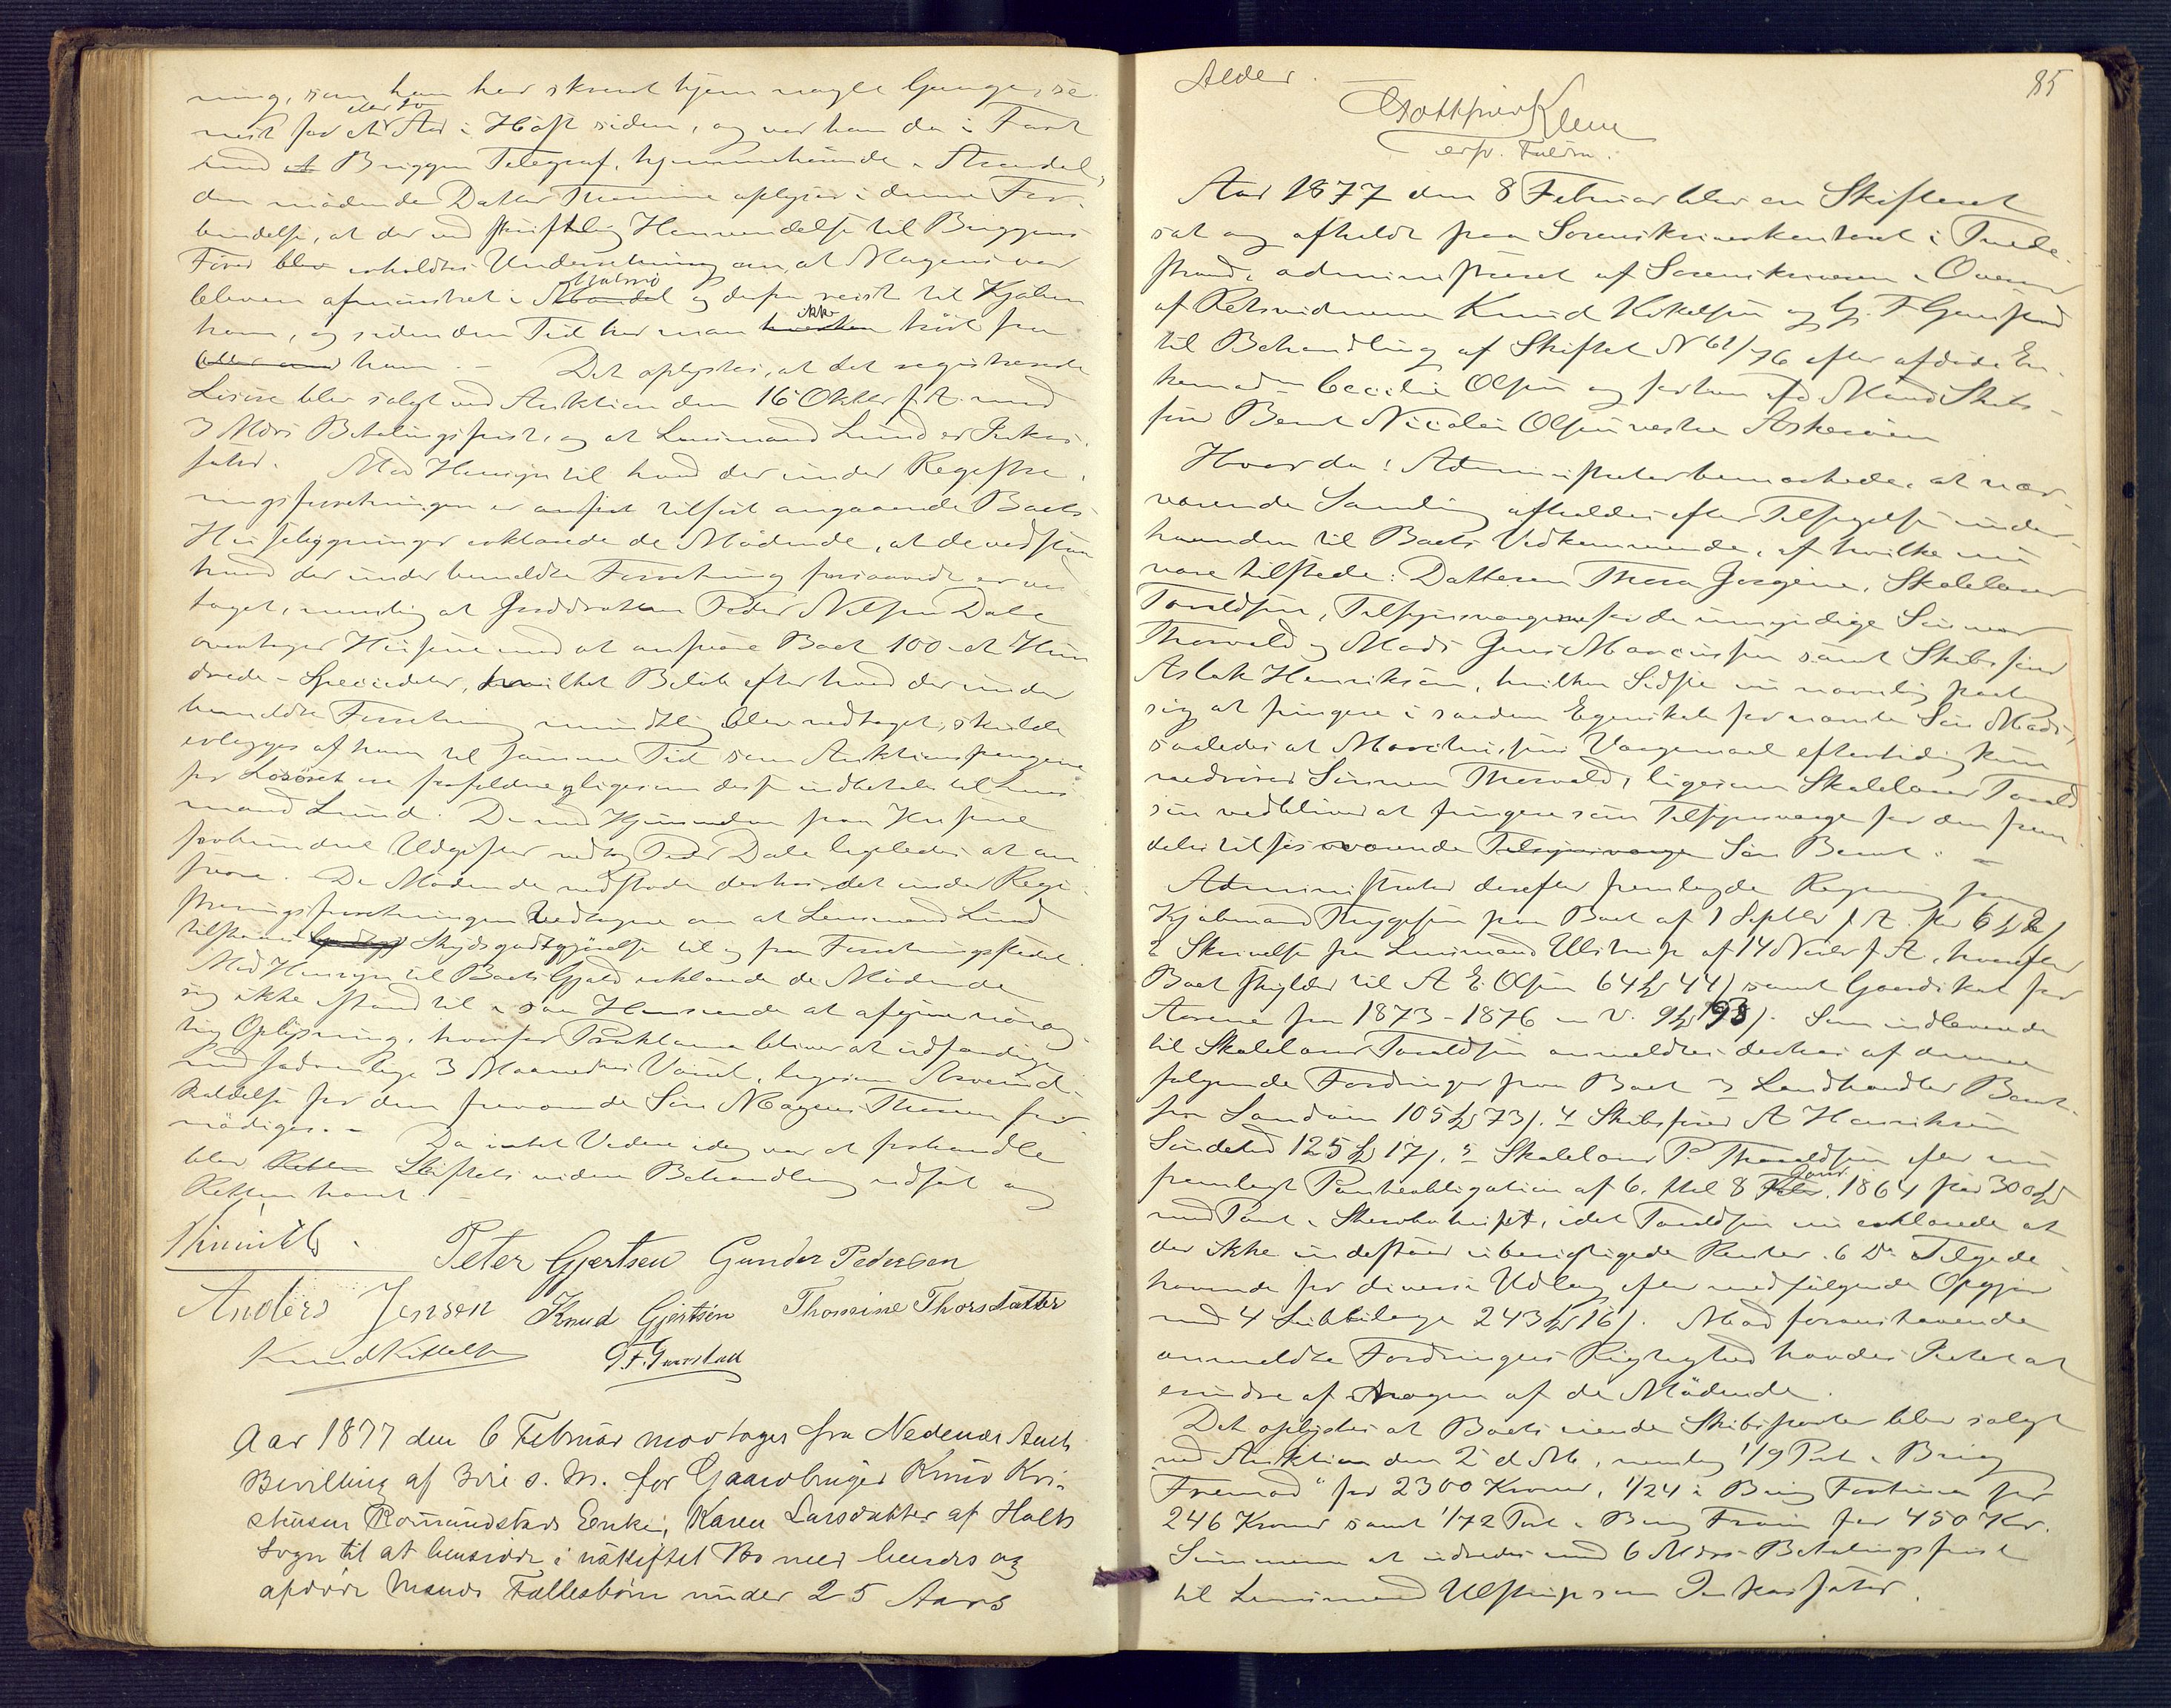 ning, som han har skrevet hjem nogle Gange, se-
nest for et eller to Aar i Høst siden, og var han da i Fart
med Briggen Telegraf, hjemmehørende i Arendal,
den mødende Datter Thomine oplyser i denne For-
bindelse, at der ved skriftlig Henvendelse til Briggens
Fører blev erholdt Underretning om, at Mogens var
bleven afmønstret i Malmø og derfra reist til Kjøben
havn, og siden den Tid har man ikke hørt fra
ham. – Det oplystes, at det registrerede
Løsøre blev solgt ved Auktion den 16 Oktbr f. A. med
3 Mdrs Betalingsfrist, og at Lensmand Lund er Inkas-
sator. Med Hensyn til hvad der under Registre-
ringsforretningen er anført angaaende Boets
Husebygninger erklærede de Mødende, at de vedstaa
hvad der under bemeldte Forretning forsaavidt er ved
taget, nemlig at Inddratten Peder Nilsen Dale
overtager Husene med at ansvare Boet 100 – et Hun
drede – Speciedaler, hvilket Beløb efter hvad der under
bemeldte Forretning mundtlig blev vedtaget, skulde
erlægges af ham til samme Tid som Auktionspengene
for Løsøret ere forfaldne ligesom det indbetales til Lens
mand Lund. De med Hjemmelen paa Husene
forbundne Udgifter vedtog Peder Dale ligeledes at an
svare. De Mødende vedstode derhos det under Regi-
streringsforretningen Vedtagne om at Lensmand Lund
tilstaaes Skydsgodtgjørelse til og fra Forretningsstedet.
Med Hensyn til Boets Gjæld erklærede de Mødende
sig ikke istand til i saa Henseende at afgive nøiag
tig Oplysning, hvorfor Proklama bliver at udfærdige
med sædvanlige 3 Maaneders Varsel, ligesom Arveind-
kaldelse for den fraværende Søn Mogens Thorsen for
nødiges. – Da intet Videre idag var at forhandle
blev Skiftets videre Behandling udsat og
Retten hævet. –
Peter Gjertsen Gunder Pedersen
Anders Jensen Knud Gjertsen Thomine Thorsdatter
Knud Kittelsen G. F. Gjerstad
Aar 1877 den 6 Februar modtoges fra Nedenæs Amt
Bevilling af 3die s. M. for Gaardbruger Knud Kri-
stensen Romundstads Enke, Karen Larsdatter af Holts
Sogn til at hensidde i uskiftet Bo med hendes og
afdøde Mands Fællesbørn under 25 Aars
Alder.
85
Gottfrier Klem
csp. Fuldm.
Aar 1877 den 8 Februar blev en Skifteret
sat og afholdt paa Sorenskriverkontoret i Tvede-
strand, administreret af Sorenskriveren i Overvær
af Retsvidnerne Knud Kittelsen og G. F. Gjerstad
til Behandling af Skiftet N 61/76 efter afdøde En-
kemadm Cecilie Olsen og forhen afd Mand Skibs-
fører Bernt Nicolai Olsen vestre Askerøen
Hvor da! Administrator bemærkede, at nær-
værende Samling afholdes efter Tilsigelse under-
haanden til Boets Vedkommende, af hvilke nu
vare tilstede: Datteren Thora Jørgine, Skolelærer
Toraldsen, Tilsynsværge for de umyndige Sønner
Thorvald og Mads Jens Marcussen samt Skibsfører
Aslak Henriksen, hvilken Sidste nu nærmlig paatog
sig at fungere i saadan Egenskab for nævnte Søn Mads,
saaledes at Marcussens Værgemaal eftertidig kun
vedrører Sønnen Thorvald, ligesom Skolelærer Torald
sen vedbliver at fungere som Tilsynsværge for den frem
deles tilsøs værende Søn Bernt. –
Administrator derefter fremlagde Regning fra
Kjøbmand Thygesen paa Boet af 1 Septbr f. A. for 6
2 Skrivelse fra Lensmand Ulstrup af 14 Novbr f. A., hvorefter
Boet skylder til A. E. Olsen 64 44 samt Gaardskat for
Aarene fra 1873 – 1876 m. V. 9 93. Som indleverede
til Skolelærer Toraldsen anmeldtes derhos af denne
følgende Fordringer paa Boet 3 Landhandler Bernt-
sen Sandøen 105 73. 4 Skibsfører A Henriksen
Sundetød 125 17. 5 Skolelærer P. Thoraldsen efter nu
fremlagt Panteobligation af 6. thl 8 Janr 1864 for 300
med Pant i , idet Toraldsen nu erklærede at
der ikke indestaar uberigtigede Renter. 6 Do Tilgode-
havende for diverse Udlæg efter medfølgende Opgjør
med 4 Subbilage 243 16. Mod foranstaaende
anmeldte Fordringers Rigtighed havdes Intet at
erindre af Nogen af de Mødende.
Det oplystes at Boets eiende Skibsparter blev solgt
ved Auktion den 2 d. M., nemlig 1/9 Part i Brig
Fremad" for 2300 Kroner, 1/24 i Brig Fortuna for
246 Kroner samt 1/72 Part i Brig for 450 Kr.
Summen at udredes med 6 Mdrs Betalingsfrist
til Lensmand Ulstrup som Inkassator.